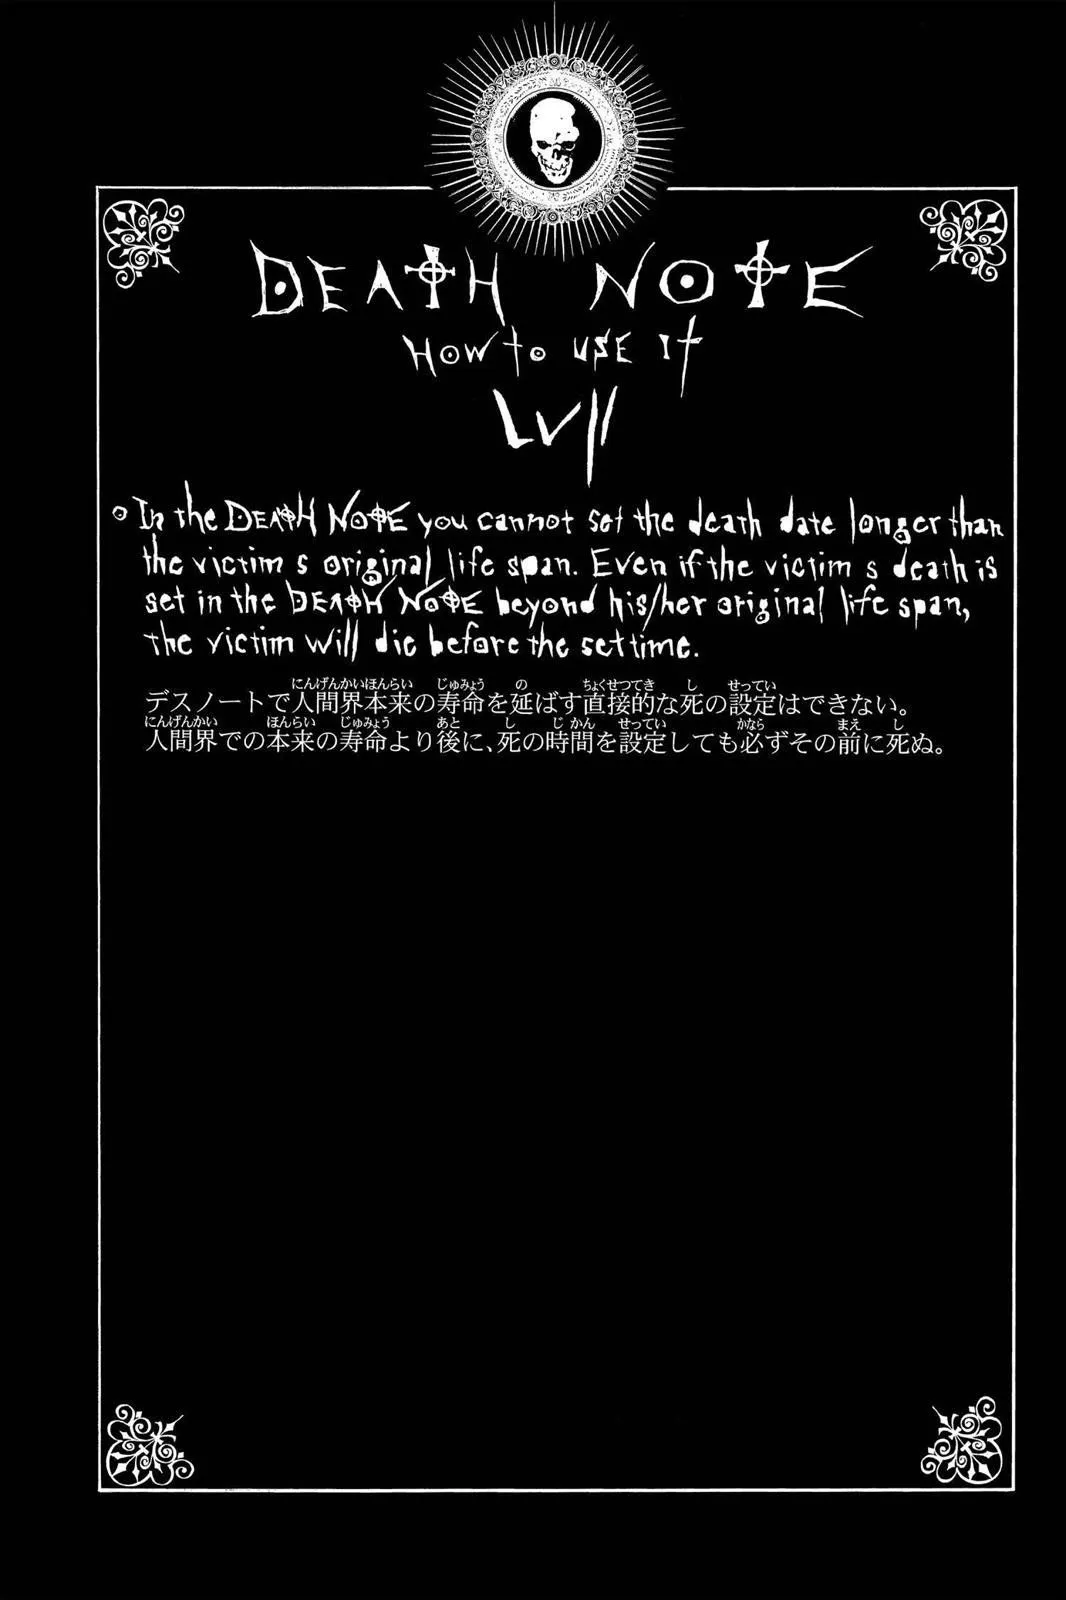 DEATH NOTE
HOW to USE It
LVII
In the DEATH NOTE you cannot set the death date longer than
the victim s original life span. Even if the victim s death is
set in the DEATH NOTE beyond his/her original life span,
the victim will die before the set time.
にんげんかいほんらい じゅみょう の ちょくせつてき し せってい
デスノートで人間界本来の寿命を延ばす直接的な死の設定はできない。
にんげんかい ほんらい じゅみょう あと し じかん せってい かなら まえ し
人間界での本来の寿命より後に、死の時間を設定しても必ずその前に死ぬ。